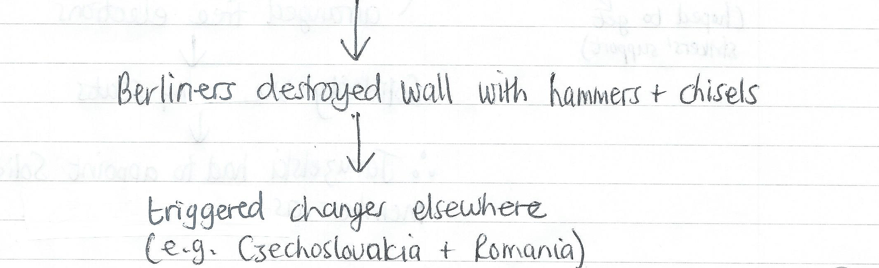 Berliners destroyed wall with hammers + chisels
triggered changes elsewhere
(e.g. Czechoslovakia + Romania)